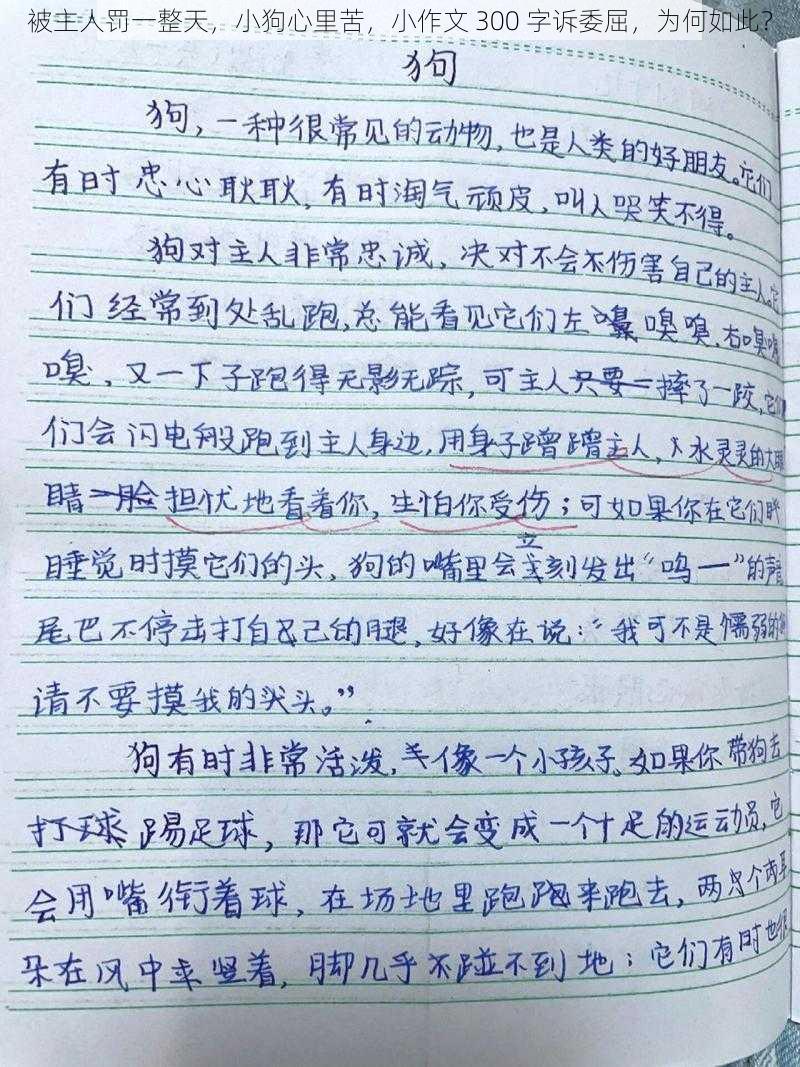 被主人罚一整天，小狗心里苦，小作文 300 字诉委屈，为何如此？
狗
狗，一种很常见的动物，也是人类的好朋友。它们
有时忠心耿耿，有时淘气顽皮，叫人哭笑不得。
狗对主人非常忠诚，决对不会不伤害自己的主人。它
们经常到处乱跑，总能看见它们左嗅嗅，右嗅
嗅，又一下子跑得无影无踪，可主人只要一摔了一跤，它
们会闪电般跑到主人身边，用身子蹭蹭主人，水灵灵的大眼
睛一脸担忧地看着你，生怕你受伤；可如果你在它们
睡觉时摸它们的头，狗的嘴里会立刻发出“呜一”的声音
尾巴不停击打自己的腿，好像在说：“我可不是懦弱的
请不要摸我的头。”
狗有时非常活泼，像一个小孩子。如果你带狗去
打球踢足球，那它可就会变成一个十足的运动员，它
会用嘴衔着球，在场地里跑跑来跑去，两个
朵在风中竖着，脚几乎不碰不到地；它们有时也很